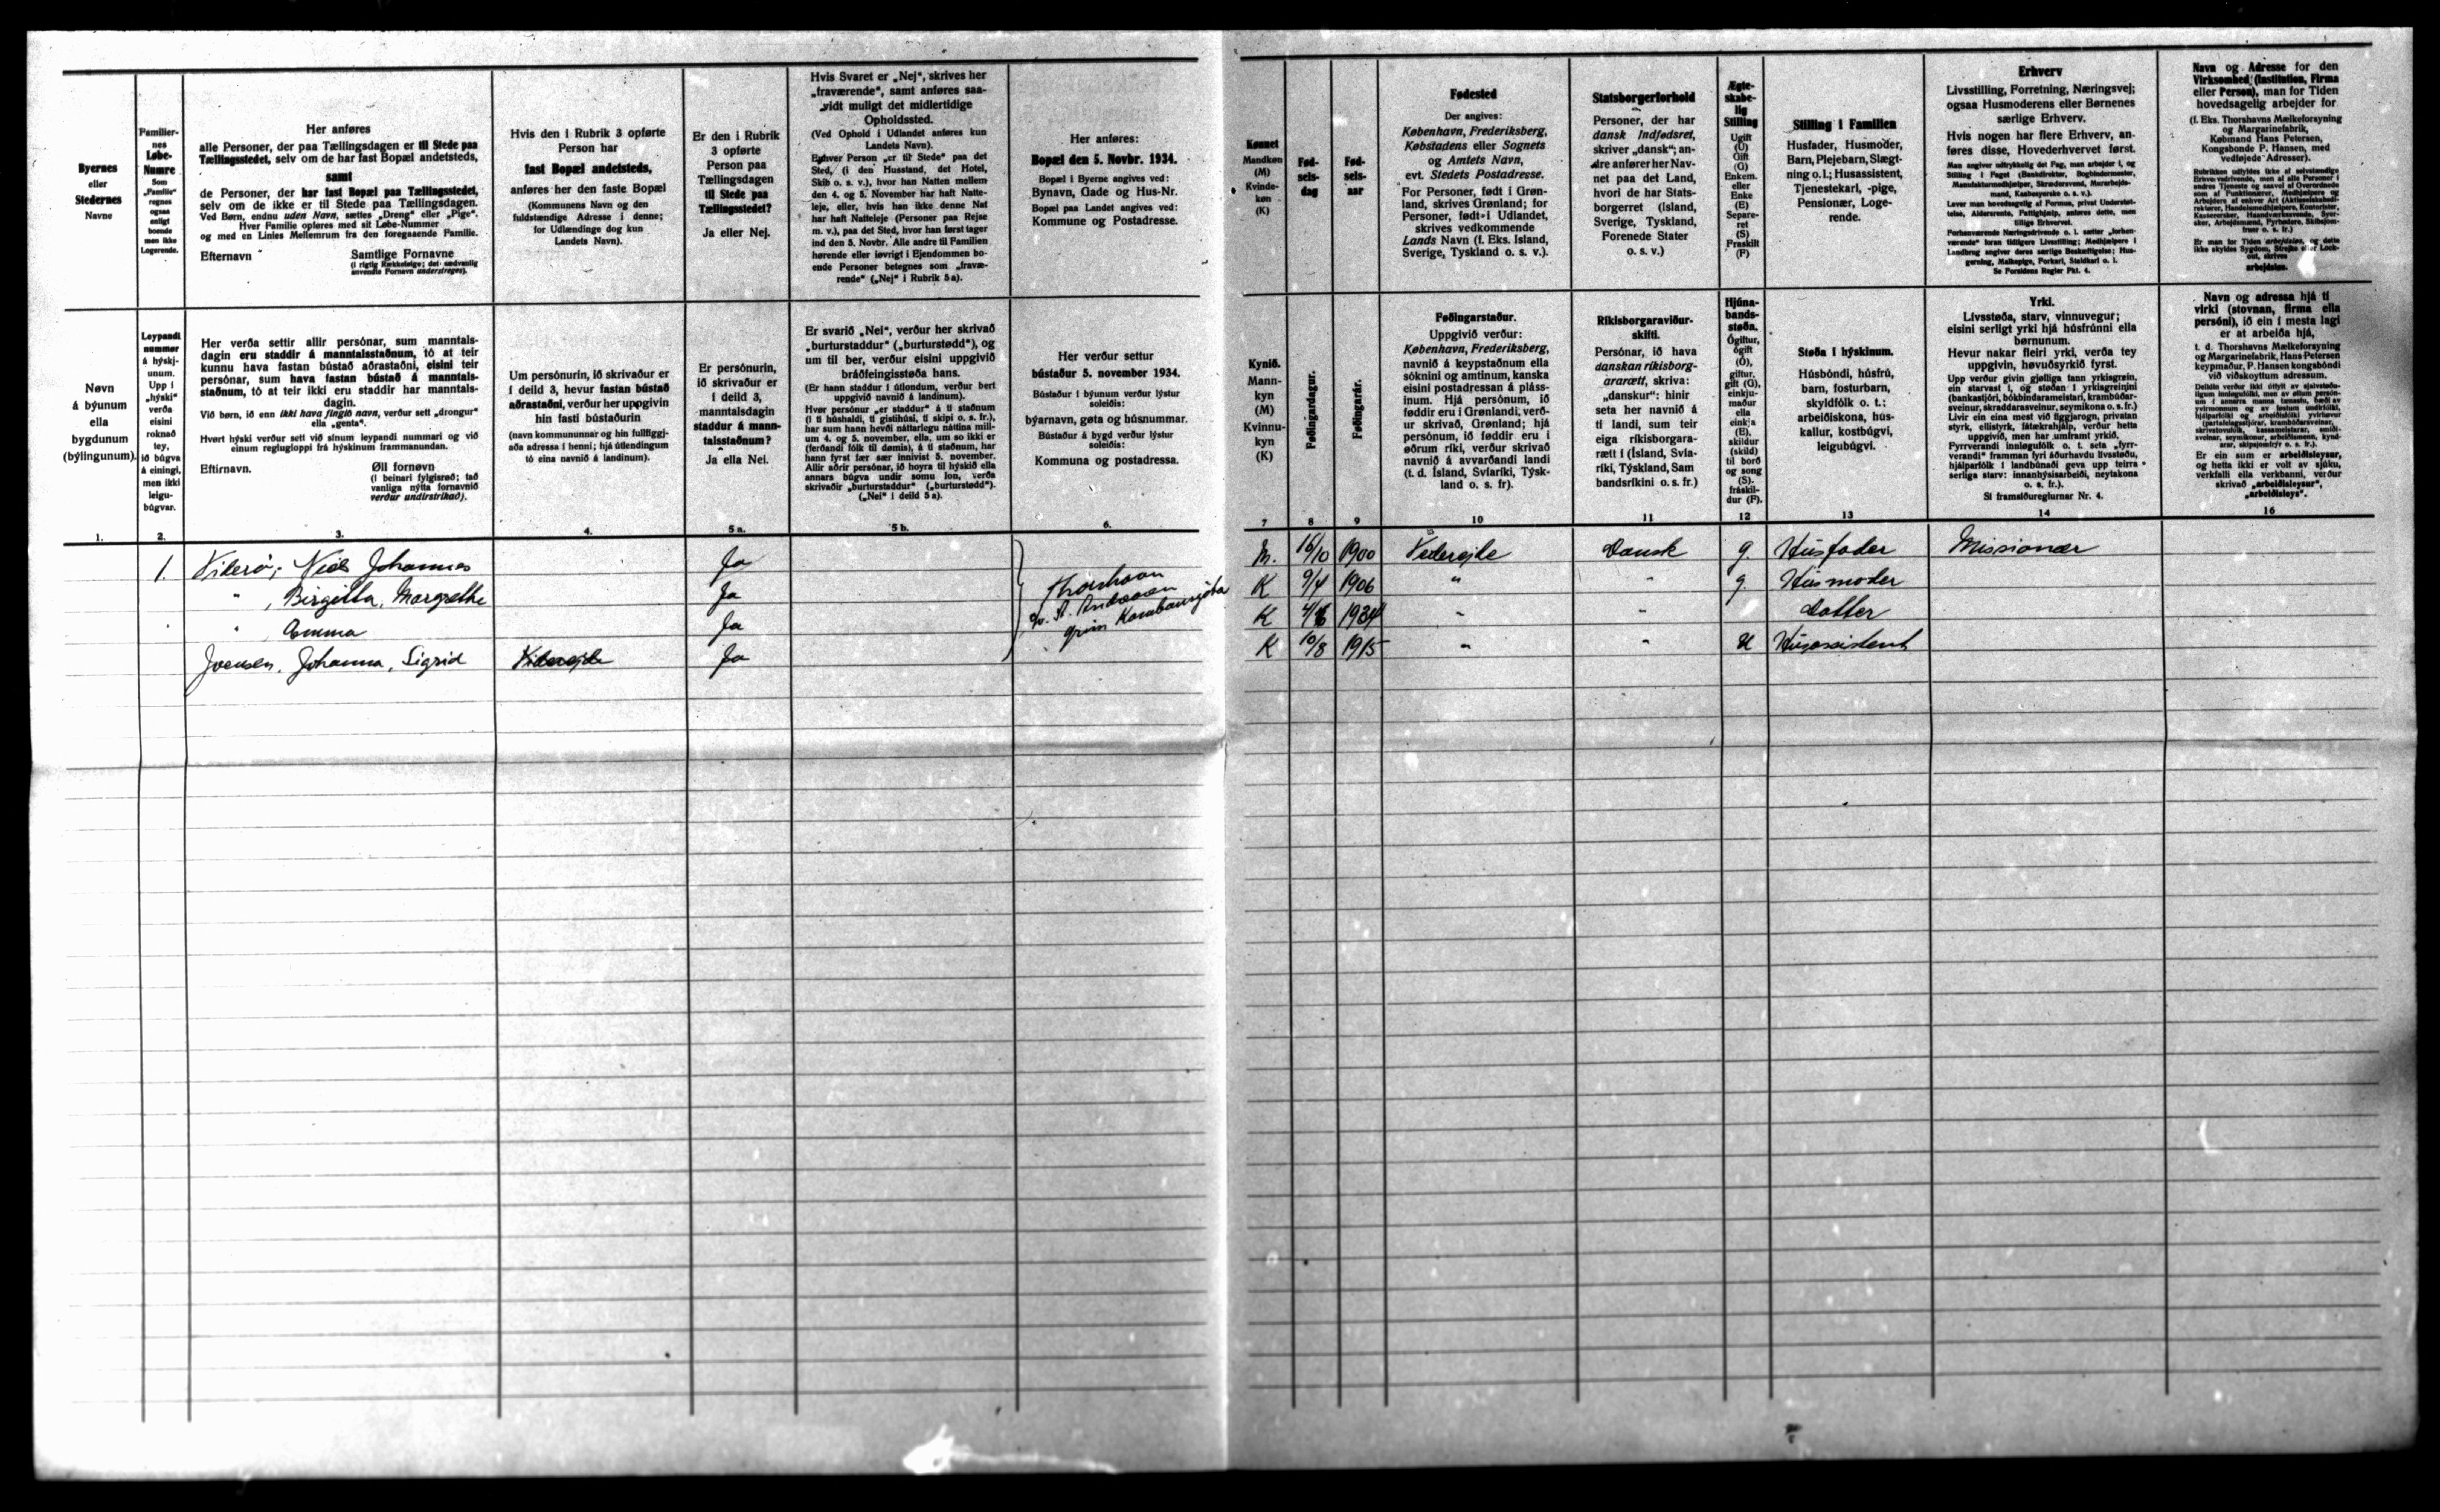 Byernes
eller
Stedernes
Navne
Familier-
nes
Løbe-
Numre
Som
„Familie“
regnes
ogsaa
enligt
boende
men ikke
Logerende.
Her anføres
alle Personer, der paa Tællingsdagen er til Stede paa
Tællingsstedet, selv om de har fast Bopæl andetsteds,
samt
de Personer, der har fast Bopæl paa Tællingsstedet,
selv om de ikke er til Stede paa Tællingsdagen.
Ved Børn, endnu uden Navn, sættes „Dreng“ eller „Pige“.
Hver Familie opføres med sit Løbe-Nummer
og med en Linies Mellemrum fra den foregaaende Familie.
Efternavn
Samtlige Fornavne
(i rigtig Rækkefølge; det sædvanlig
anvendte Fornavn understreges).
Hvis den i Rubrik 3 opførte
Person har
fast Bopæl andetsteds,
anføres her den faste Bopæl
(Kommunens Navn og den
fuldstændige Adresse i denne;
for Udlændinge dog kun
Landets Navn).
Er den i Rubrik
3 opførte
Person paa
Tællingsdagen
til Stede paa
Tællingsstedet?
Ja eller Nej.
Hvis Svaret er „Nej“, skrives her
„fraværende“, samt anføres saa-
vidt muligt det midlertidige
Opholdssted.
(Ved Ophold i Udlandet anføres kun
Landets Navn).
Enhver Person „er til Stede“ paa det
Sted, (i den Husstand, det Hotel,
Skib o. s. v.), hvor han Natten mellem
den 4. og 5. November har haft Natte-
leje, eller, hvis han ikke denne Nat
har haft Natteleje (Personer paa Rejse
m. v.), paa det Sted, hvor han først tager
ind den 5. Novbr. Alle andre til Familien
hørende eller iøvrigt i Ejendommen bo-
ende Personer betegnes som „fravæ-
rende“ („Nej“ i Rubrik 5 a).
Her anføres:
Bopæl den 5. Novbr. 1934.
Bopæl i Byerne angives ved:
Bynavn, Gade og Hus-Nr.
Bopæl paa Landet angives ved:
Kommune og Postadresse.
Kønnet
Mandkøn
(M)
Kvinde-
køn
(K)
Fød-
sels-
dag
Fød-
sels-
aar
Fødested
Der angives:
København, Frederiksberg,
Købstadens eller Sognets
og Amtets Navn,
evt. Stedets Postadresse.
For Personer, født i Grøn-
land, skrives Grønland; for
Personer, født i Udlandet,
skrives vedkommende
Lands Navn (f. Eks. Island,
Sverige, Tyskland o. s. v.).
Statsborgerforhold
Personer, der har
dansk Indfødsret,
skriver „dansk“; an-
dre anfører her Nav-
net paa det Land,
hvori de har Stats-
borgerret (Island,
Sverige, Tyskland,
Forenede Stater
o. s. v.)
Ægte-
skabe-
lig
Stilling
Ugift
(U)
Gift
(G)
Enkem.
eller
Enke
(E)
Separe-
ret
(S)
Fraskilt
(F)
Stilling i Familien
Husfader, Husmoder,
Barn, Plejebarn, Slægt-
ning o. l.; Husassistent,
Tjenestekarl, -pige,
Pensionær, Loge-
rende.
Erhverv
Livsstilling, Forretning, Næringsvej;
ogsaa Husmoderens eller Børnenes
særlige Erhverv.
Hvis nogen har flere Erhverv, an-
føres disse, Hovederhvervet først.
Se Forsidens Regler Pkt. 4.
Navn og Adresse for den
Virksomhed (Institution, Firma
eller Person), man for Tiden
hovedsagelig arbejder for
(f. Eks. Thorshavns Mælkeforsyning
og Margarinefabrik,
Købmand Hans Petersen,
Kongsbonde P. Hansen, med
vedføjede Adresser).
arbejdsløs.
Nøvn
á býunum
ella
bygdunum
(býlingunum).
Leypandi
nummar
á hýskj-
unum.
Upp í
„hýski“
verða
eisini
roknað
tey,
ið búgva
á einingi,
men ikki
leigu-
búgvar.
Her verða settir allir persónar, sum manntals-
dagin eru staddir á manntalsstaðnum, tó at teir
kunnu hava fastan bústað aðrastaðni, eisini teir
persónar, sum hava fastan bústað á manntals-
staðnum, tó at teir ikki eru staddir har manntals-
dagin.
Við børn, ið enn ikki hava fingið navn, verður sett „drongur“
ella „genta“.
Hvørt hýski verður sett við sínum leypandi nummari og við
einum reglugloppi frá hýskinum frammanundan.
Eftirnavn.
Øll fornøvn
(í beinari fylgisrøð; tað
vanliga nýtta fornavnið
verður undirstrikað).
Um persónurin, ið skrivaður er
í deild 3, hevur fastan bústað
aðrastaðni, verður her uppgivin
hin fasti bústaðurin
(navn kommununnar og hin fullfíggj-
aða adressa í henni; hjá útlendingum
tó eina navnið á landinum).
Er persónurin,
ið skrivaður er
í deild 3,
manntalsdagin
staddur á mann-
talsstaðnum?
Ja ella Nei.
Er svarið „Nei“, verður her skrivað
„burturstaddur“ („burturstødd“), og
um til ber, verður eisini uppgivið
bráðfeingisstøða hans.
(Er hann staddur í útlondum, verður bert
uppgivið navnið á landinum).
Hvør persónur „er staddur“ á tí staðnum
(í tí húshaldi, tí gistihúsi, tí skipi o. s. fr.),
har sum hann hevði náttarlegu náttina mill-
um 4. og 5. november, ella, um so ikki er
(ferðandi fólk til dømis), á tí staðnum, har
hann fyrst fær sær innivist 5. november.
Allir aðrir persónar, ið hoyra til hýskið ella
annars búgva undir somu lon, verða
skrivaðir „burturstaddur“ („burturstødd“).
(„Nei“ í deild 5 a).
Her verður settur
bústaður 5. november 1934.
Bústaður í býunum verður lýstur
soleiðis:
býarnavn, gøta og húsnummar.
Bústaður á bygd verður lýstur
soleiðis:
Kommuna og postadressa.
Kynið.
Mann-
kyn
(M)
Kvinnu-
kyn
(K)
Føðingardagur.
Føðingarár.
Føðingarstaður.
Uppgivið verður:
København, Frederiksberg,
navnið á keypstaðnum ella
sóknini og amtinum, kanska
eisini postadressan á pláss-
inum. Hjá persónum, ið
føddir eru í Grønlandi, verð-
ur skrivað, Grønland; hjá
persónum, ið føddir eru í
øðrum ríki, verður skrivað
navnið á avvarðandi landi
(t. d. Ísland, Svíaríki, Týsk-
land o. s. fr).
Ríkisborgaraviður-
skifti.
Persónar, ið hava
danskan ríkisborg-
ararætt, skriva:
„danskur“: hinir
seta her navnið á
tí landi, sum teir
eiga ríkisborgara-
rætt í (Ísland, Svía-
ríki, Týskland, Sam
bandsríkini o. s. fr.)
Hjúna-
bands-
støða.
Ógiftur,
ógift
(Ó),
giftur,
gift (G),
einkju-
maður
ella
einkja
(E),
skildur
(skild)
til borð
og song
(S).
fráskil-
dur (F).
Støða í hýskinum.
Húsbóndi, húsfrú,
barn, fosturbarn,
skyldfólk o. t.;
arbeiðiskona, hús-
kallur, kostbúgvi,
leigubúgvi.
Yrki.
Lívsstøða, starv, vinnuvegur;
eisini serligt yrki hjá húsfrúnni ella
børnunum.
Hevur nakar fleiri yrki, verða tey
uppgivin, høvuðsyrkið fyrst.
Sí framsíðureglurnar Nr. 4.
Navn og adressa hjá tí
virki (stovnan, firma ella
persóni), ið ein í mesta lagi
er at arbeiða hjá,
t. d. Thorshavns Mælkeforsyning
og Margarinefabrik, Hans Petersen
keypmaður, P. Hansen kongsbóndi
við viðskoyttum adressum.
Er ein sum er arbeiðisleysur,
og hetta ikki er volt av sjúku,
verkfalli ella verkbanni, verður
skrivað „arbeiðisleysur“,
„arbeiðisleys“.
1. 2. 3. 4. 5 a. 5 b. 6. 7 8 9 10 11 12 13 14 16
1. Viderø, Niels Johannes Ja M. 16/10 1900 Viderejde Dansk g. Husfader Missionær
" , Birgitta, Margrethe Ja K 9/4 1906 " " g. Husmoder
" Emma Ja K 1934 " " Datter
Joensen, Johanna, Sigrid Viderejde Ja K 10/8 1915 " " U Husassistent
Thorshavn